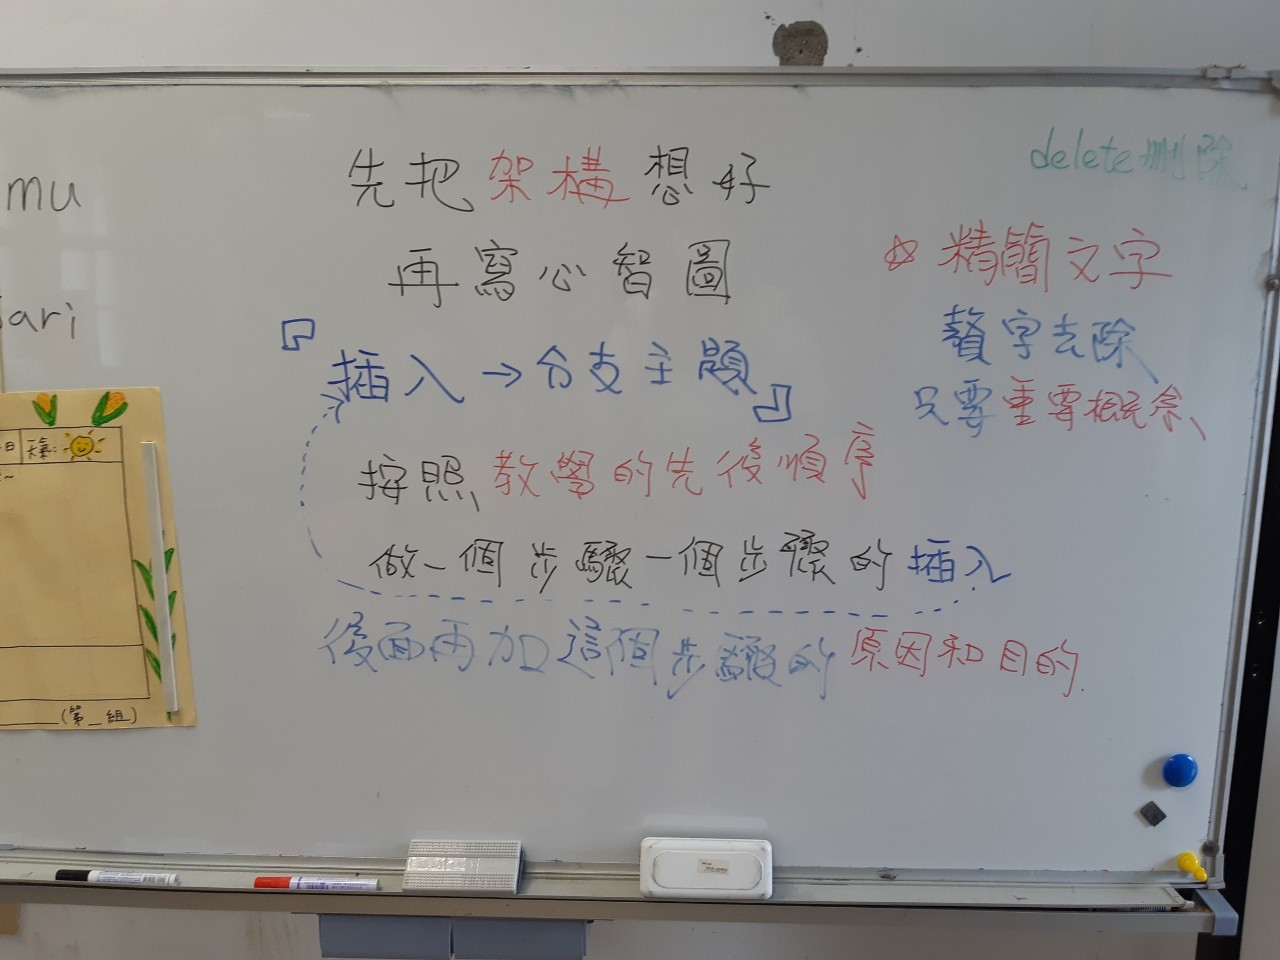 mu
ari
先把架構想好
再寫心智圖
『插入→分支主題』
按照教學的先後順序
做一個步驟一個步驟的插入
後面再加這個步驟的原因和目的.
delete刪除
☆精簡文字
贅字去除
只要重要概念、
日 天氣:
(第_組)